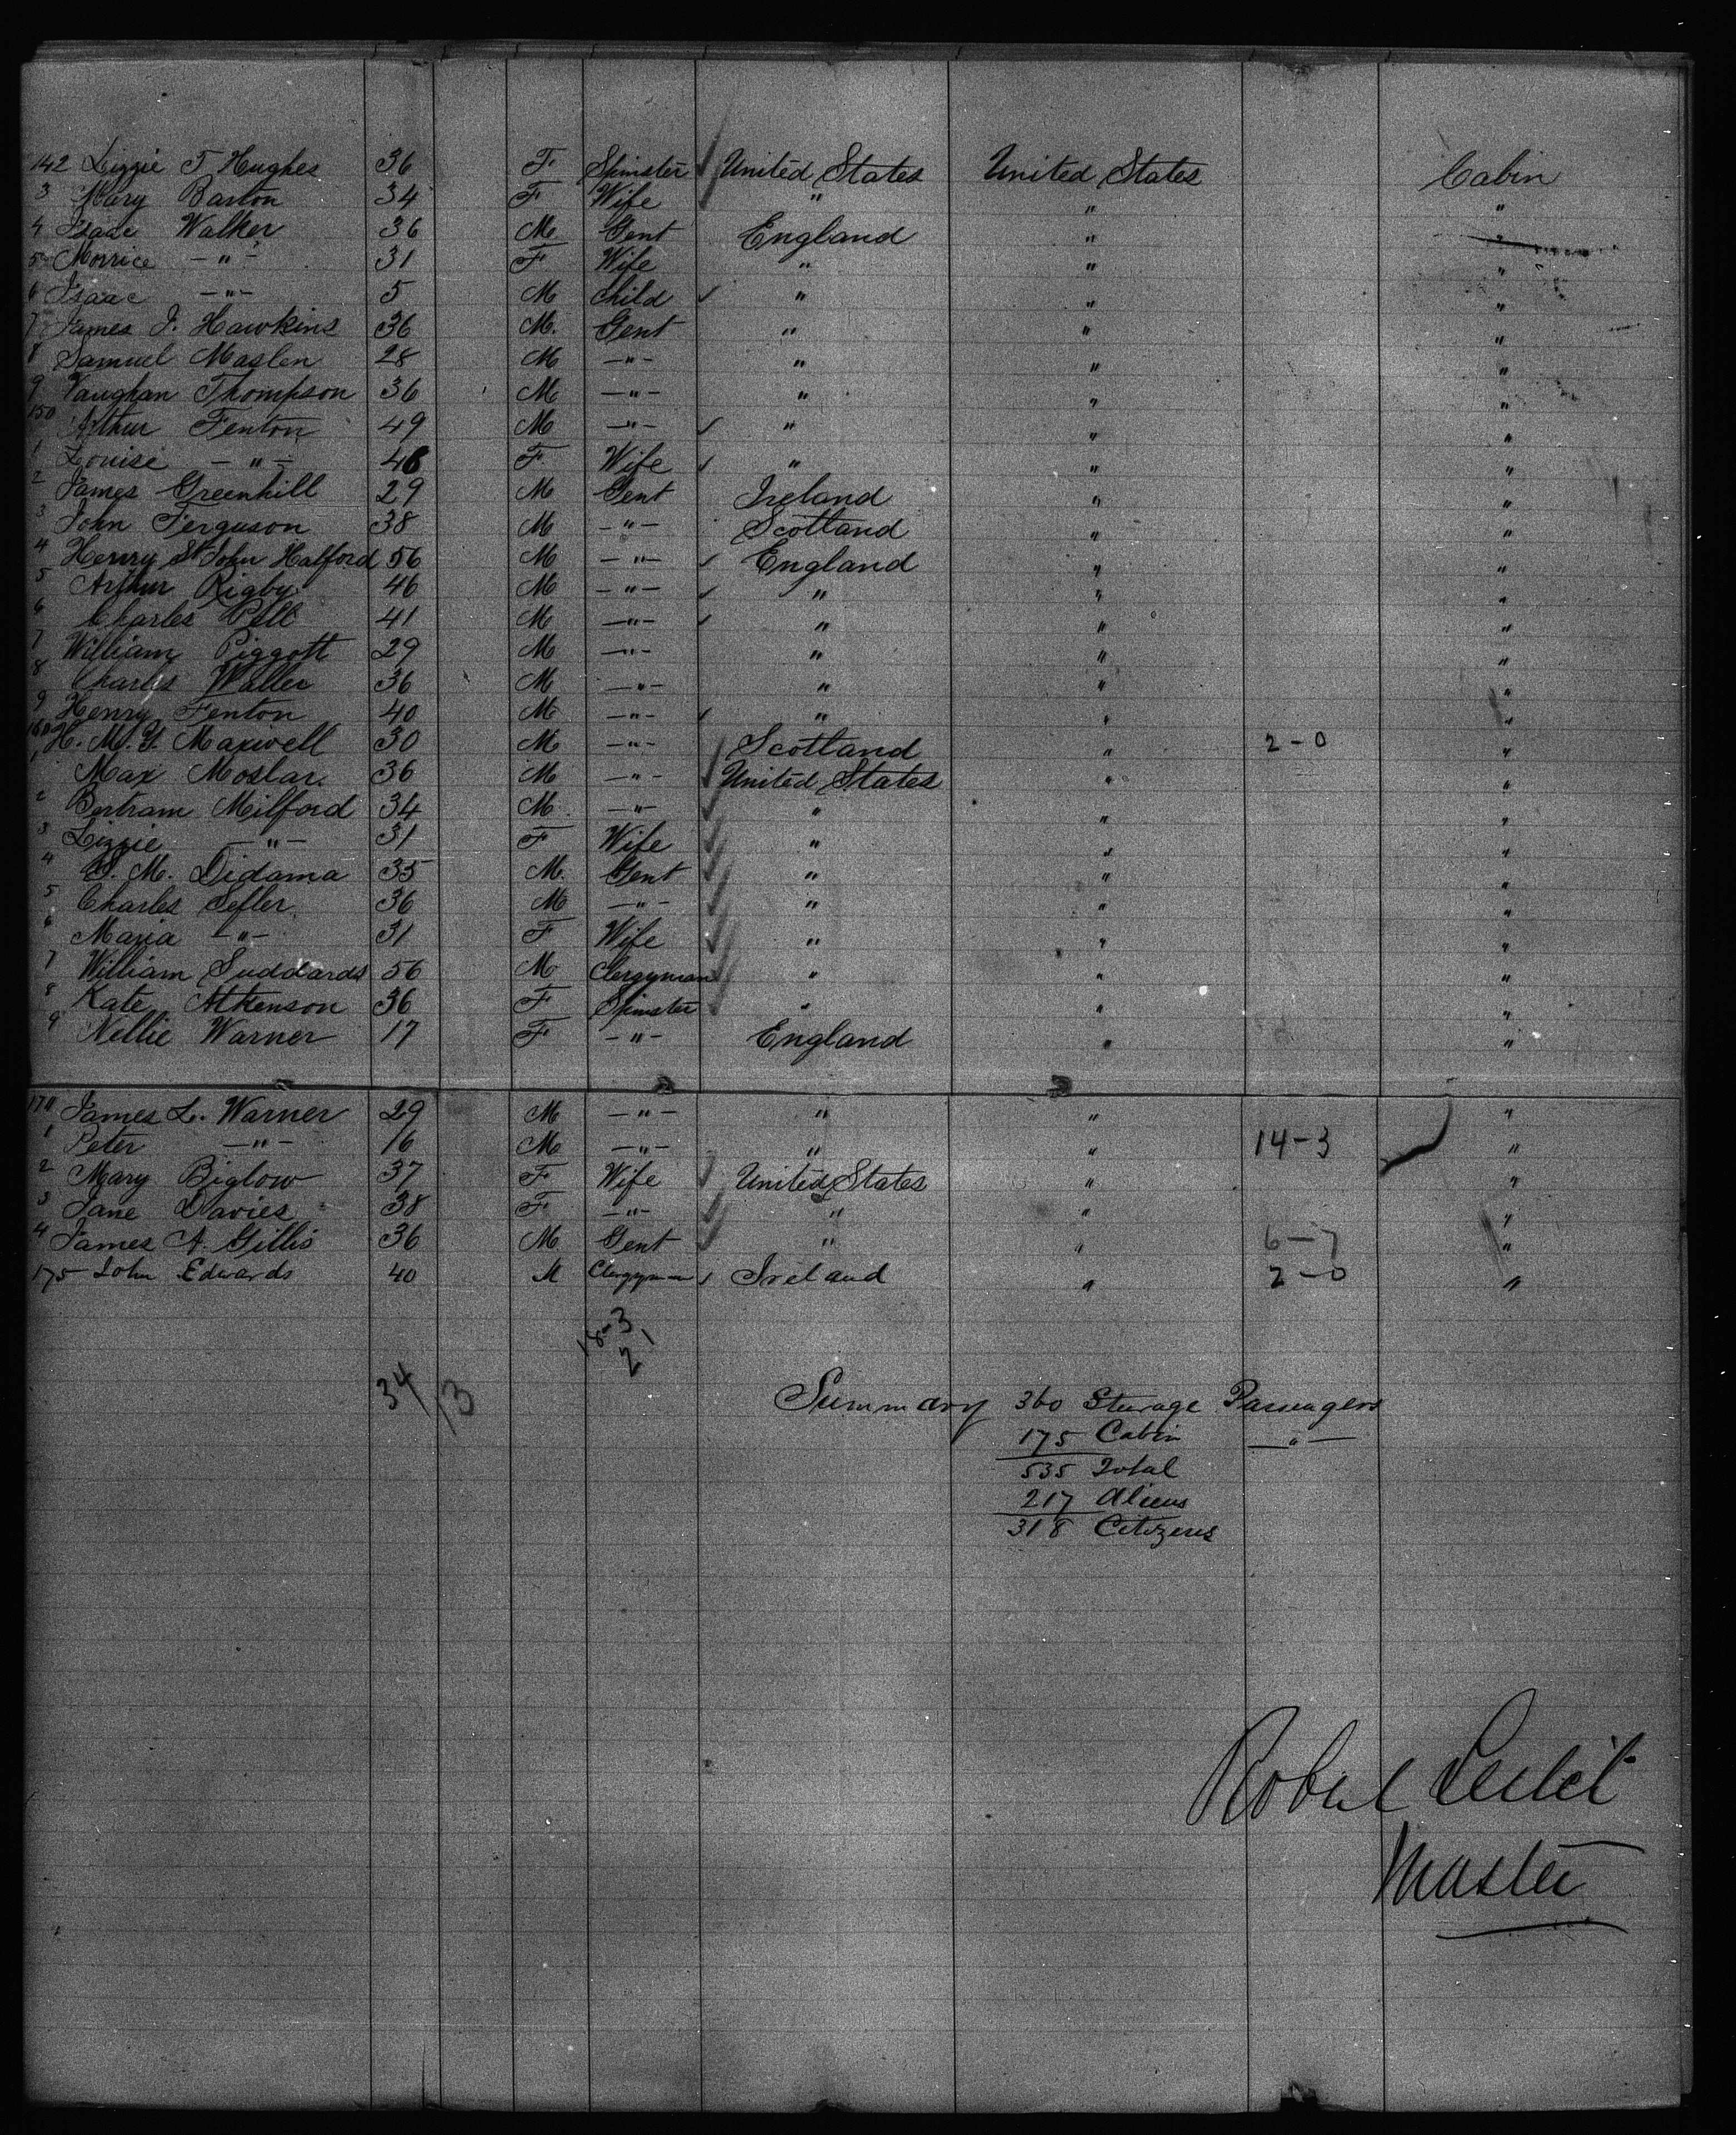 142 Lizzie T Hughes 36 F Spinster United States United States Cabin
3 Mary Barton 34 F Wife " " "
4 Isaac Walker 36 M Gent England " "
5 Morrice -"- 31 F Wife " " "
6 Isaac -"- 5 M Child " " "
7 James J. Hawkins 36 M. Gent " " "
8 Samuel Maslen 28 M -"- " " "
9 Vaughan Thompson 36 M -"- " " "
150 Arthur Fenton 49 M -"- " " "
1 Louise -"- 46 F Wife " " "
2 James Greenhill 29 M Gent Ireland " "
3 John Ferguson 38 M -"- Scotland " "
4 Henry St John Halford 56 M -"- England " "
5 Arthur Rigby 46 M -"- " " "
6 Charles 41 M -"- " " "
7 William Piggott 29 M -"- " " "
8 Charles Waller 36 M -"- " " "
9 Henry Fenton 40 M -"- " " "
160 H. M. Y. Maxwell 30 M -"- Scotland " 2-0 "
1 Max Moslar. 36 M -"- United States " "
2 Bertram Milford 34 M -"- " " "
3 Lizzie -"- 31 F Wife " " "
4 M. Didama 35 M. Gent " " "
5 Charles Sefler 36 M -"- " " "
6 Maria -"- 31 F Wife " " "
7 William Suddards 56 M Clergyman " " "
8 Kate Atkenson 36 F Spinster " " "
9 Nellie Warner 17 F -"- England " "
170 James L. Warner 29 M -"- " " "
1 Peter -"- 16 M -"- " " 14-3 "
2 Mary Biglow 37 F Wife United States " "
3 Jane Davies 38 F -"- " " "
4 James A. Gillis 36 M Gent " " 6-7 "
175 John Edwards 40 M Clergyman Ireland " 2-0 "
18-3
2 1
34 / 3
Summary 360 Sturage Passengers
175 Cabin -"-
535 Total
217 Aliens
318 Citizens
Robert
Master